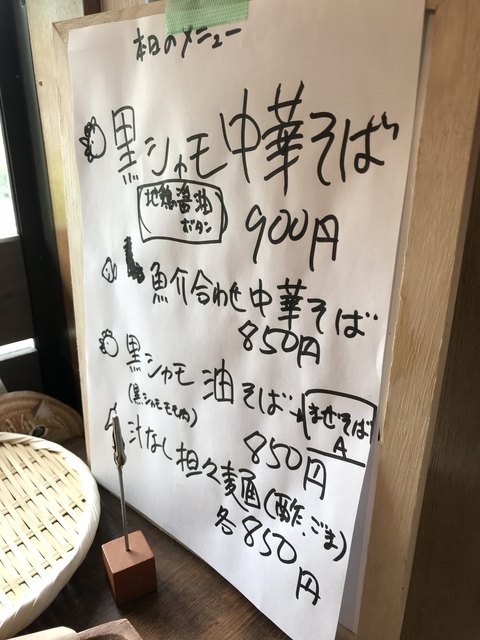 本日のメニュー
黒シャモ中華そば
地鶏醤油
ボタン
900円
魚介合わせ中華そば
850円
黒シャモ油そば→まぜそば
A
(黒シャモモモ肉)
850円
汁なし担々麺(酢、ごま)
各850円